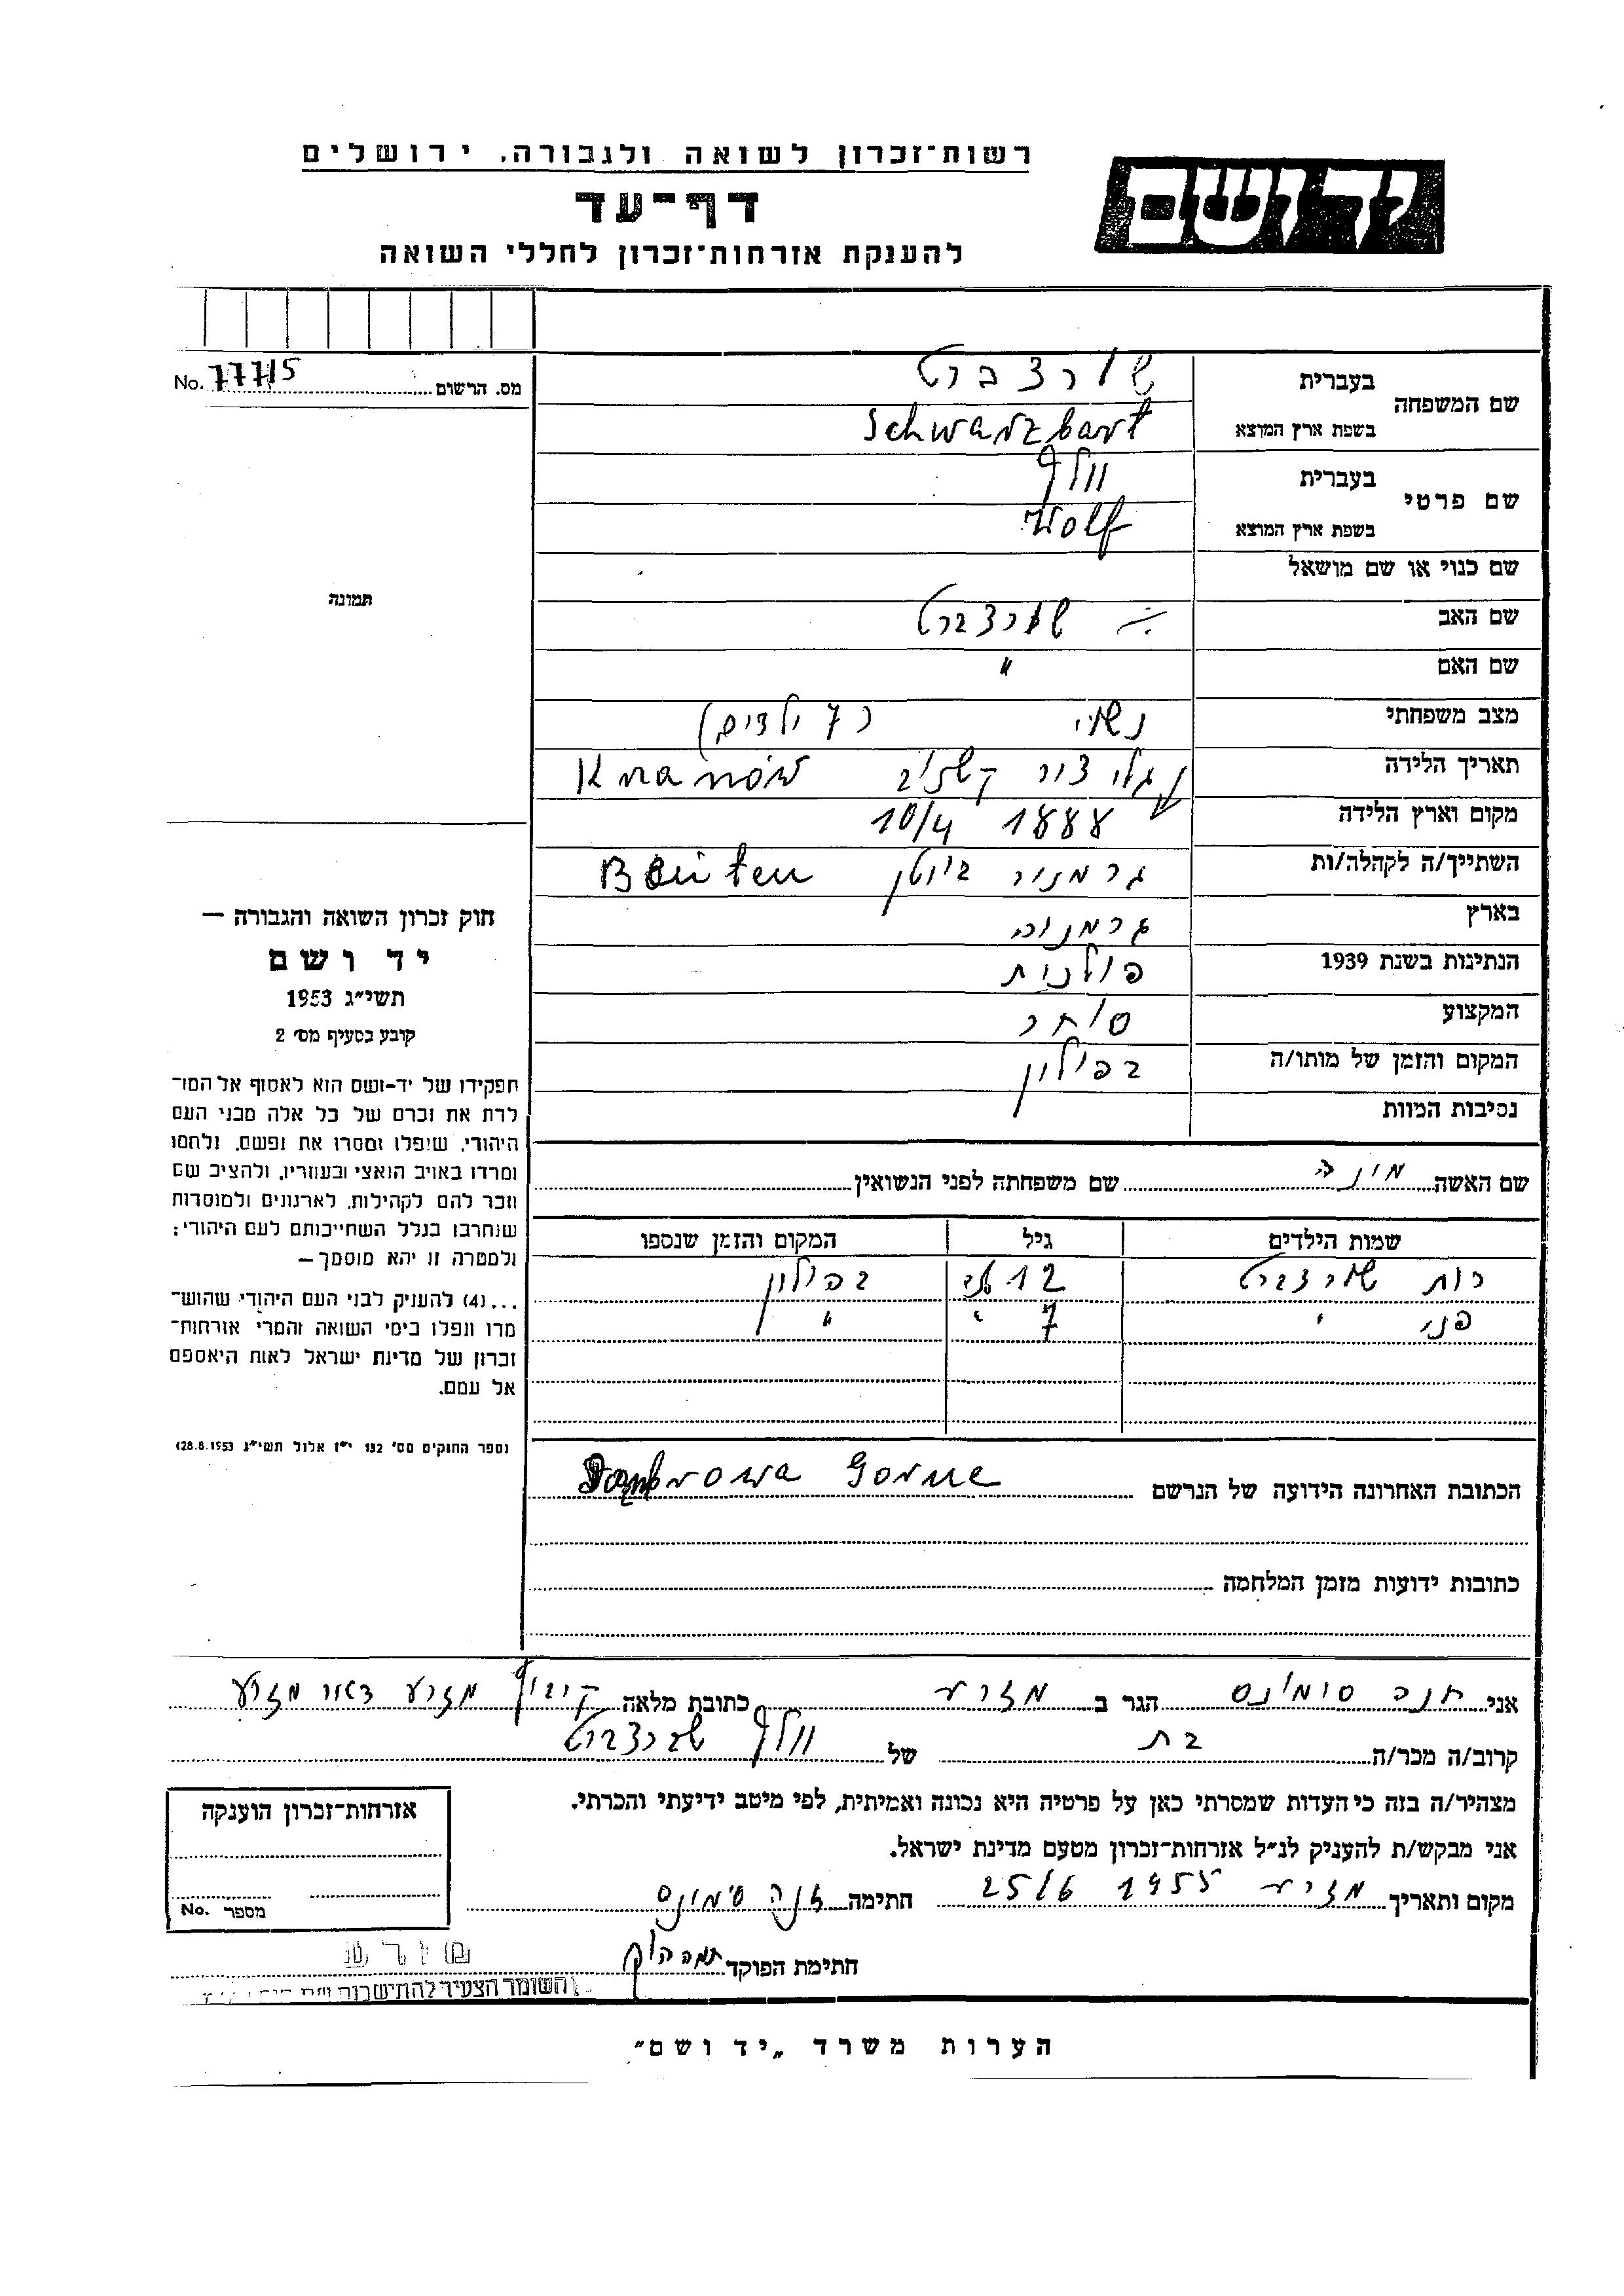 רשות־זכרון לשואה ולגבורה, ירושלים
יד ושם
דף־עד
להענקת אזרחות־זכרון לחללי השואה
מס. הרשום No. 77715
שם המשפחה בעברית שורצברט
בשפת ארץ המוצא Schwarzbart
שם פרטי בעברית וולף
בשפת ארץ המוצא Wolf
שם כנוי או שם מושאל
שם האב שורצברט
שם האם "
מצב משפחתי נשוי (7 ילדים)
תאריך הלידה
מקום וארץ הלידה 1888 10/4
השתייך/ה לקהלה/ות גרמניה ביוטן Beuten
בארץ גרמניה
הנתינות בשנת 1939 פולנית
המקצוע סוחר
המקום והזמן של מותו/ה בפולין
נסיבות המוות
שם האשה מינה שם משפחתה לפני הנשואין
שמות הילדים גיל המקום והזמן שנספו
רות שורצברט 12 בפולין
פני " 7 " "
הכתובת האחרונה הידועה של הנרשם Dombrowa Gorne
כתובות ידועות מזמן המלחמה
תמונה
חוק זכרון השואה והגבורה —
יד ושם
תשי״ג 1953
קובע בסעיף מס׳ 2
תפקידו של יד־ושם הוא לאסוף אל המו־
לדת את זכרם של כל אלה מבני העם
היהודי, שנפלו ומסרו את נפשם, נלחמו
ומרדו באויב הנאצי ובעוזריו, ולהציב שם
וזכר להם לקהילות, לארגונים ולמוסדות
שנחרבו בגלל השתייכותם לעם היהודי;
ולמטרה זו יהא מוסמך —
...(4) להעניק לבני העם היהודי שהוש־
מדו ונפלו בימי השואה והמרי אזרחות־
זכרון של מדינת ישראל לאות היאספם
אל עמם.
(ספר החוקים מס׳ 132 י״ז אלול תשי״ג 28.8.1953)
אני חנה סימונס הגר ב מזרע כתובת מלאה קיבוץ מזרע דאר מזרע
קרוב/ה מכר/ה בת של וולף שורצברט
מצהיר/ה בזה כי העדות שמסרתי כאן על פרטיה היא נכונה ואמיתית, לפי מיטב ידיעתי והכרתי.
אני מבקש/ת להעניק לנ״ל אזרחות־זכרון מטעם מדינת ישראל.
מקום ותאריך מזרע 1955 25/6 חתימה חנה סימונס
חתימת הפוקד
אזרחות־זכרון הוענקה
מספר No.
השומר הצעיר להתישבות
הערות משרד „יד ושם״